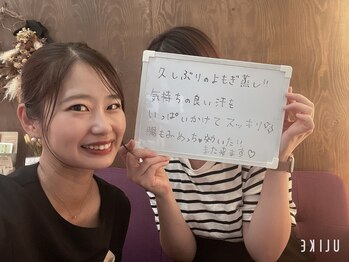 久しぶりのよもぎ蒸し!!
気持ちの良い汗を
いっぱいかけてスッキリ☆
腸もみめっちゃ効いた!!
また来ます♡
ULIKE